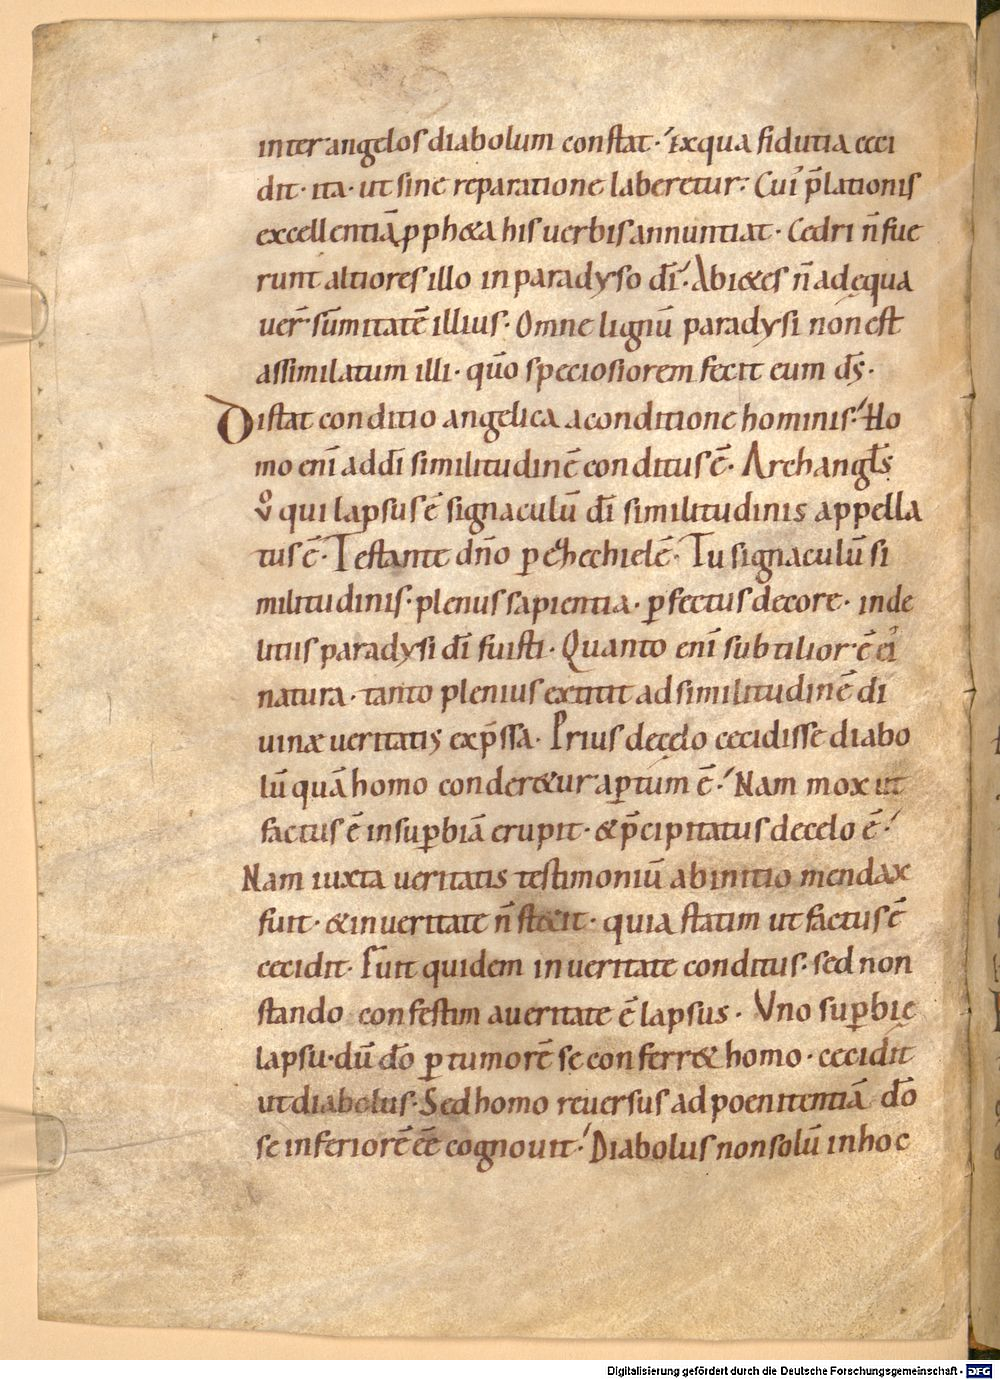 inter angelos diabolum constat· Ex qua fidutia ceci
dit· ita· ut sine reparatione laberetur· Cui᾽ p̄lationis
excellentiā ꝓpheta his uerbis annuntiat· Cedri n̄ fue
runt altiores illo in paradyso dī· Abi&es n̄ adęqua
uer̄ sūmitatē illius· Omne lignū paradysi non est
assimilatum illi· qm̄o speciosiorem fecit eum ds̄·
Distat conditio angelica a conditione hominis· Ho
mo enī ad dī similitudinē conditus ē· Archangls̄
v̊ qui lapsus ē signaculū dī similitudinis appella
tus ē· Testante dn̄o ꝑ ezhechielē· Tu signaculū si
militudinis· plenus sapientia· ꝑfectus decore· in de
litiis paradysi dī fuisti· Quanto enī subtilior ē ei᾽
natura· tanto plenius extitit ad similitudinē di
uinæ ueritatis exp̄ssa· Prius de cęlo cecidisse diabo
lū quā homo conder&ur aꝑtum ē· Nam mox ut
factus ē in suꝑbiā erupit· & p̄cipitatus de celo ē·
Nam iuxta ueritatis testimoniū ab initio mendax
fuit· & in ueritate n̄ st&it· quia statim ut factus ē
cecidit· Fuit quidem in ueritate conditus· sed non
stando confestim a ueritate ē lapsus· Uno suꝑbię
lapsu· dū dō ꝑ tumorē se conferr& homo· cecidit
ut diabolus· Sed homo reuersus ad poenitentiā dō
se inferiorē eē cognouit· Diabolus non solū in hoc
Digitalisierung gefördert durch die Deutsche Forschungsgemeinschaft - DFG